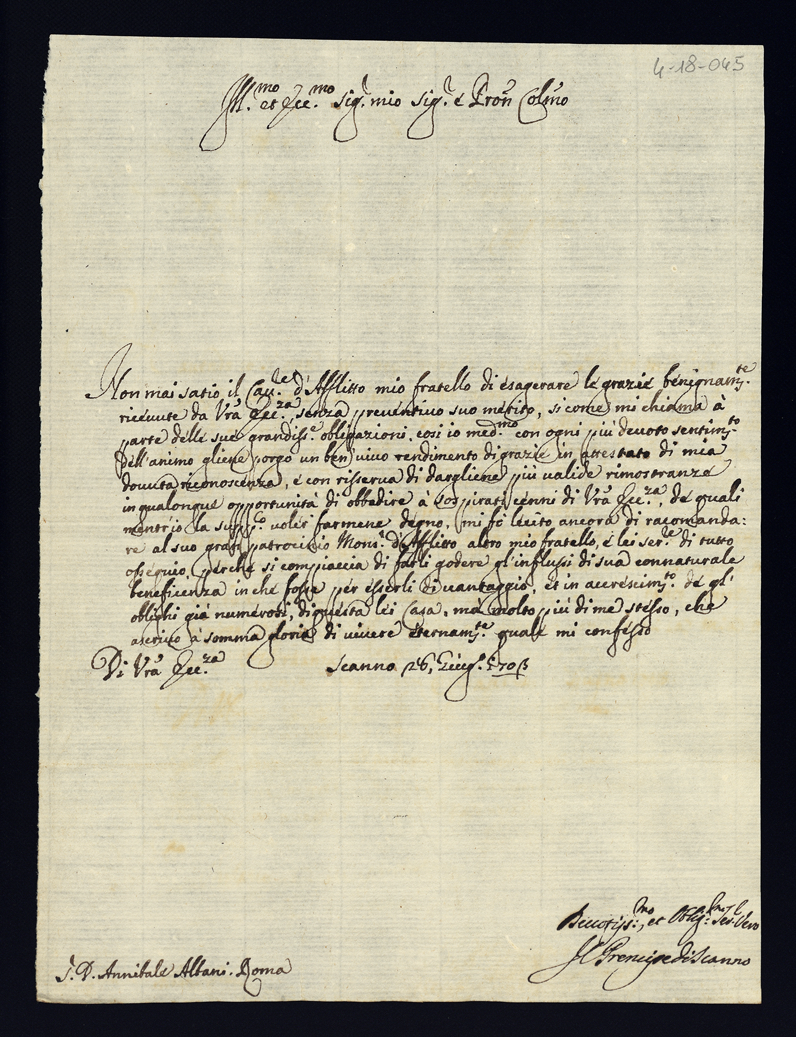 4-18-045
Ill.mo et Ecc.mo Sig.r mio Sig.r e Pron Colmo
Non mai satio il Cau.re d'Afflitto mio fratello di esagerare le grazie benignam.te
riceuute da Vra Ecc.za, senza preuentiuo suo merito, si come mi chiama à
parte delle sue grandiss.e obligazioni, cosi io med.mo con ogni più deuoto sentim.to
dell'animo gliene porgo un ben uiuo rendimento di grazie in attestato di mia
douuta riconoscenza, e con risserua di dargliene più ualide rimostranze
in qualonque opportunità di obbedire à sospirati cenni di Vra Ecc.za, de quali
mentr'io la supp.co uoler farmene degno, mi fò lecito ancora di racomanda:
re al suo gran patrocinio Mons.r d'Afflitto altro mio fratello, e lei ser.re di tutto
ossequio, perche si compiaccia di farli godere gl'influssi di sua connaturale
beneficenza in che fosse per esserli di uantaggio, et in accrescim.to de gl'
oblighi già numerosi, di questa lei Casa, ma molto più di me stesso, che
ascriuo à somma gloria di uiuere eternam.te quale mi confesso
Di Vra Ecc.za Scanno 26, Giug.o 1703
Deuotiss.mo, et Oblig.mo Ser. Vero
Il Prencipe di Scanno
S.r D. Annibale Albani. Roma